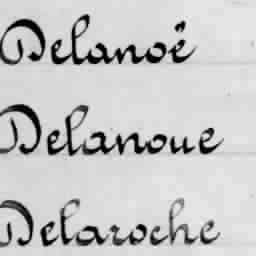 Delanoë
Delanoue
Delaroche